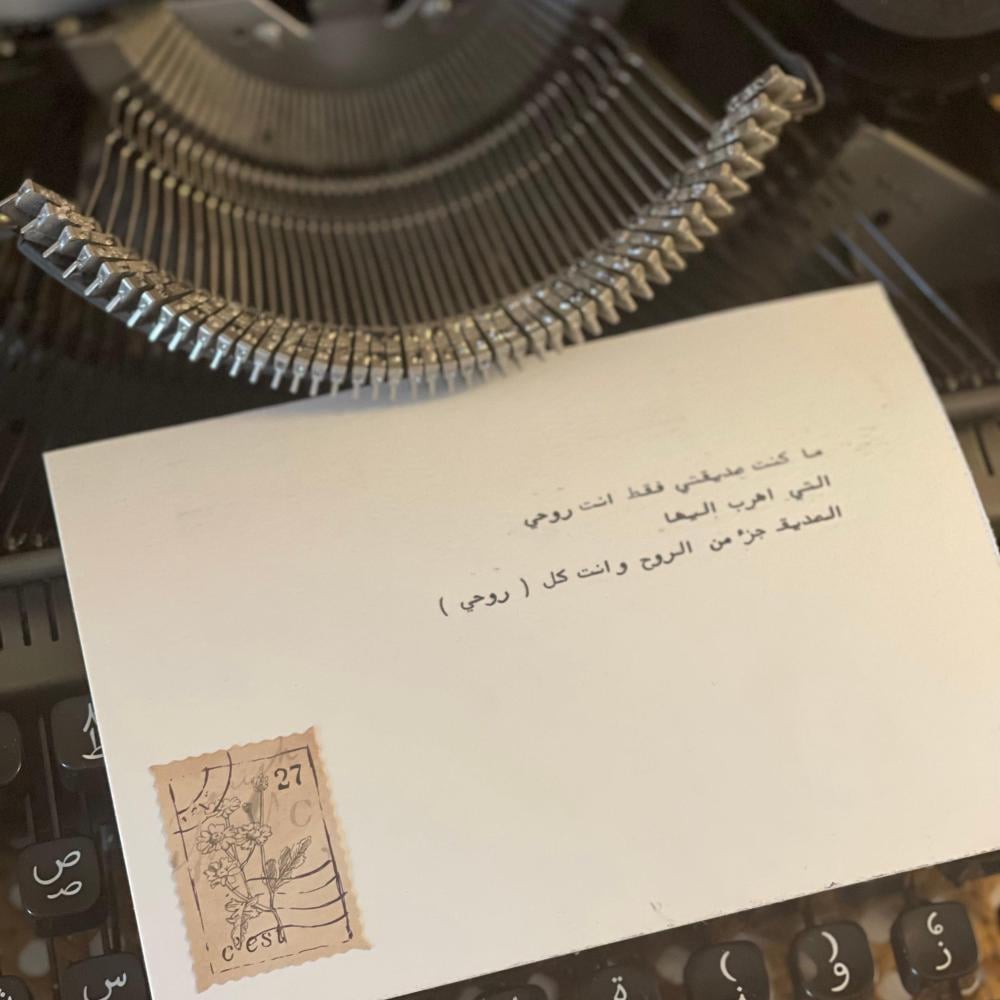 ما كنت صديقتي فقط انت روحي
التي اهرب اليها
الصديق جزء من الروح و انت كل ( روحي )
27
C
c'est
ص
صـ
س
ة
و